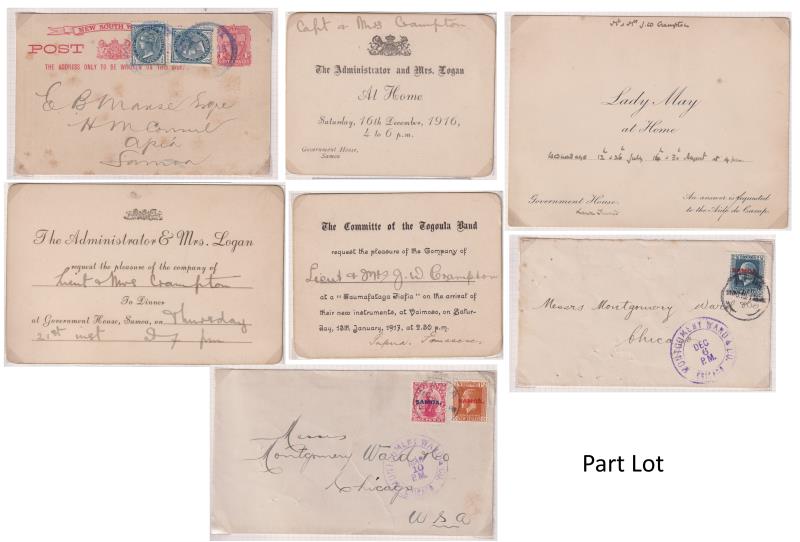 NEW SOUTH W
POST
THE ADDRESS ONLY TO BE WRITTEN ON THIS SIDE
E B Manse Esqre
H M Consul
Apia
Samoa
Capt & Mrs Crampton
The Administrator and Mrs. Logan
At Home
Saturday, 16th December, 1916,
4 to 6 p.m.
Government House,
Samoa
Mr & Mrs J.W Crampton
Lady May
at Home
12th & 26th July 16th & 30th August at 4 p.m.
Government House.
An answer is requested
to the Aide de Camp.
The Administrator & Mrs. Logan
request the pleasure of the company of
Lieut & Mrs Crampton
To Dinner
at Government House, Samoa, on Thursday
21st inst 7 pm
The Committe of the Togoula Band
request the pleasure of the Company of
Lieut & Mrs J.W Crampton
at a "Taumafataga Fiafia" on the arrival of
their new instruments, at Vaimoso, on Satur-
day, 13th January, 1917, at 2.30 p.m.
SAMOA.
Messrs Montgomery Ward
Chica
MONTGOMERY WARD & CO.
DEC
6
P.M.
CHICAGO
SAMOA.
SAMOA.
Messrs
Montgomery Ward & Co
Chicago
U.S.A
MONTGOMERY WARD & CO.
10
P.M.
CHICAGO
Part Lot